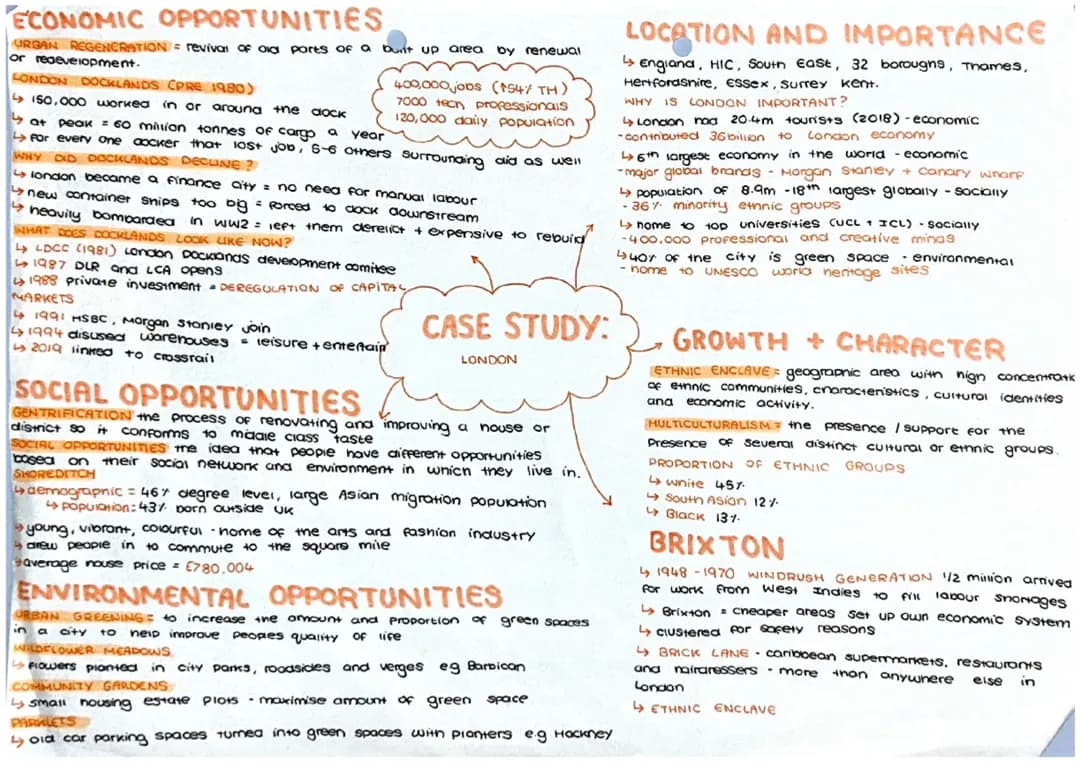 ECONOMIC OPPORTUNITIES
URBAN REGENERATION = revival of old parts of a built up area by renewal
or redevelopment.
400,000 jobs (↑54% TH)
7000 tech professionals
120,000 daily population
LONDON DOCKLANDS (PRE 1980)
↳ 150,000 worked in or around the dock
↳ at peak = 60 million tonnes of cargo a year
↳ for every one docker that lost job, 5-6 others surrounding did as well
WHY DID DOCKLANDS DECLINE?
↳ london became a finance city = no need for manual labour
↳ new container ships too big = forced to dock downstream
↳ heavily bombarded in WW2 = left them derelict + expensive to rebuild
WHAT DOES DOCKLANDS LOOK LIKE NOW?
↳ LDCC (1981) London Docklands development comitee
↳ 1987 DLR and LCA opens
↳ 1988 private investment = DEREGULATION OF CAPITAL
MARKETS
↳ 1991 HSBC, Morgan Stanley join
↳ 1994 disused warehouses = leisure + entertain
↳ 2019 linked to crossrail
SOCIAL OPPORTUNITIES
GENTRIFICATION the process of renovating and improving a house or
district so it conforms to middle class taste
SOCIAL OPPORTUNITIES the idea that people have different opportunities
based on their social network and environment in which they live in.
SHOREDITCH
↳ demographic = 46% degree level, large Asian migration population
↳ population: 43% born outside UK
↳ young, vibrant, colourful - home of the arts and fashion industry
↳ drew people in to commute to the square mile
↳ average house price = £780,004
ENVIRONMENTAL OPPORTUNITIES
URBAN GREENING = to increase the amount and proportion of green spaces
in a city to help improve peoples quality of life
WILDFLOWER MEADOWS
↳ flowers planted in city parks, roadsides and verges eg Barbican
COMMUNITY GARDENS
↳ small housing estate plots - maximise amount of green space
PARKLETS
↳ old car parking spaces turned into green spaces with planters e.g Hackney
CASE STUDY:
LONDON
LOCATION AND IMPORTANCE
↳ England, HIC, South East, 32 boroughs, Thames,
Hertfordshire, Essex, Surrey Kent.
WHY IS LONDON IMPORTANT?
↳ London had 20.4m tourists (2018) - economic
- contributed 36 billion to London economy
↳ 6th largest economy in the world - economic
- major global brands - Morgan Stanley + Canary Wharf
↳ population of 8.9m - 18th largest globally - socially
- 36% minority ethnic groups
↳ home to top universities (UCL + ICL) - socially
- 400,000 professional and creative minds
↳ 40% of the city is green space - environmental
- home to UNESCO world heritage sites
GROWTH + CHARACTER
ETHNIC ENCLAVE = geographic area with high concentratn
of ethnic communities, characteristics, cultural identities
and economic activity.
MULTICULTURALISM = the presence / support for the
presence of several distinct cultural or ethnic groups.
PROPORTION OF ETHNIC GROUPS
↳ White 45%
↳ South Asian 12%
↳ Black 13%
BRIXTON
↳ 1948 - 1970 WINDRUSH GENERATION 1/2 million arrived
for work from West Indies to fill labour shortages
↳ Brixton = cheaper areas set up own economic system
↳ clustered for safety reasons
↳ BRICK LANE - caribbean supermarkets, restaurants
and hairdressers - more than anywhere else in
London
↳ ETHNIC ENCLAVE